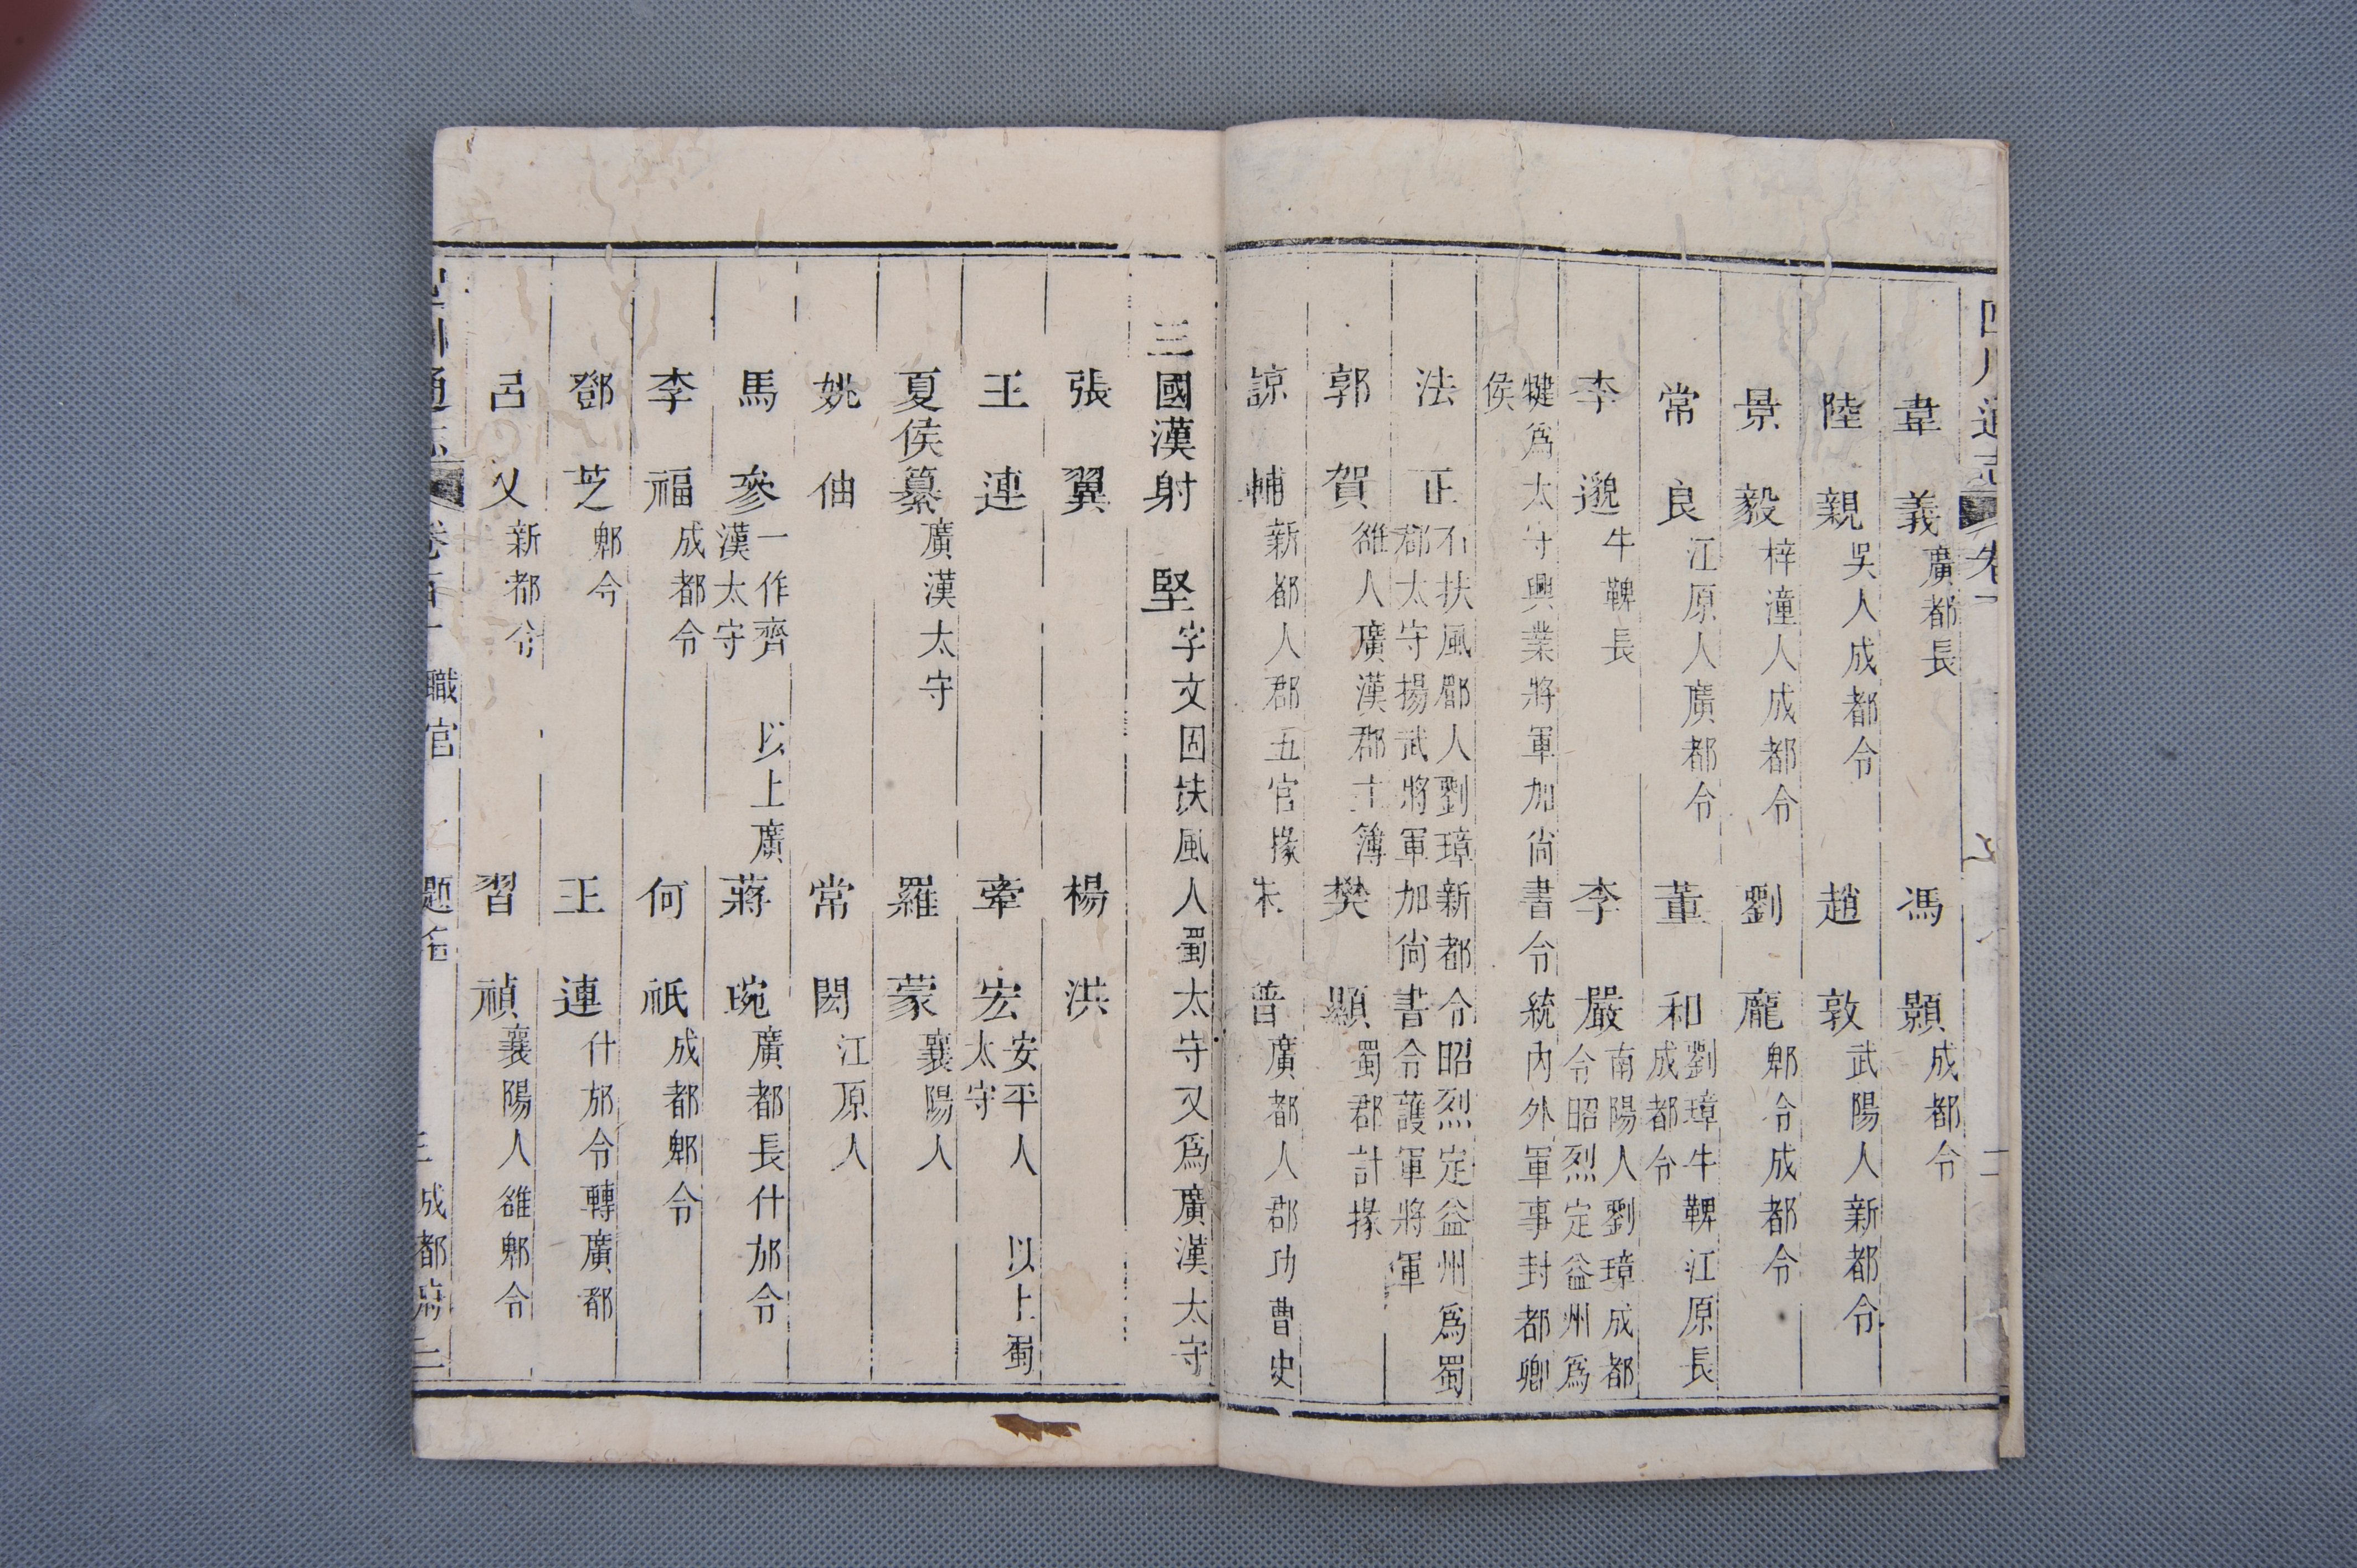 韋義廣都長　馮顥成都令
陸親吳人成都令　趙敦武陽人新都令
景毅梓潼人成都令　劉龐郫令成都令
常良江原人廣都令　董和劉璋牛鞞江原長成都令
李邈牛鞞長　李嚴南陽人劉璋成都令昭烈定益州爲
犍爲太守興業將軍加尙書令統內外軍事封都鄕侯
法正右扶風郿人劉璋新都令昭烈定益州爲蜀郡太守揚武將軍加尙書令護軍將軍
郭賀雒人廣漢郡主簿　樊顯蜀郡計掾
諒輔新都人郡五官掾　朱普廣都人郡功曹史
三國漢射　堅字文固扶風人蜀太守又爲廣漢太守
張翼　楊洪
王連　牽宏安平人太守　以上蜀
夏侯纂廣漢太守　羅蒙襄陽人
姚伷　常閎江原人
馬參一作齊　以上廣漢太守　蔣琬廣都長什邡令
李福成都令　何祇成都郫令
鄧芝郫令　王連什邡令轉廣都
呂乂新都令　習禎襄陽人雒郫令
四川通志　卷百一　職官　題名　三　成都府二